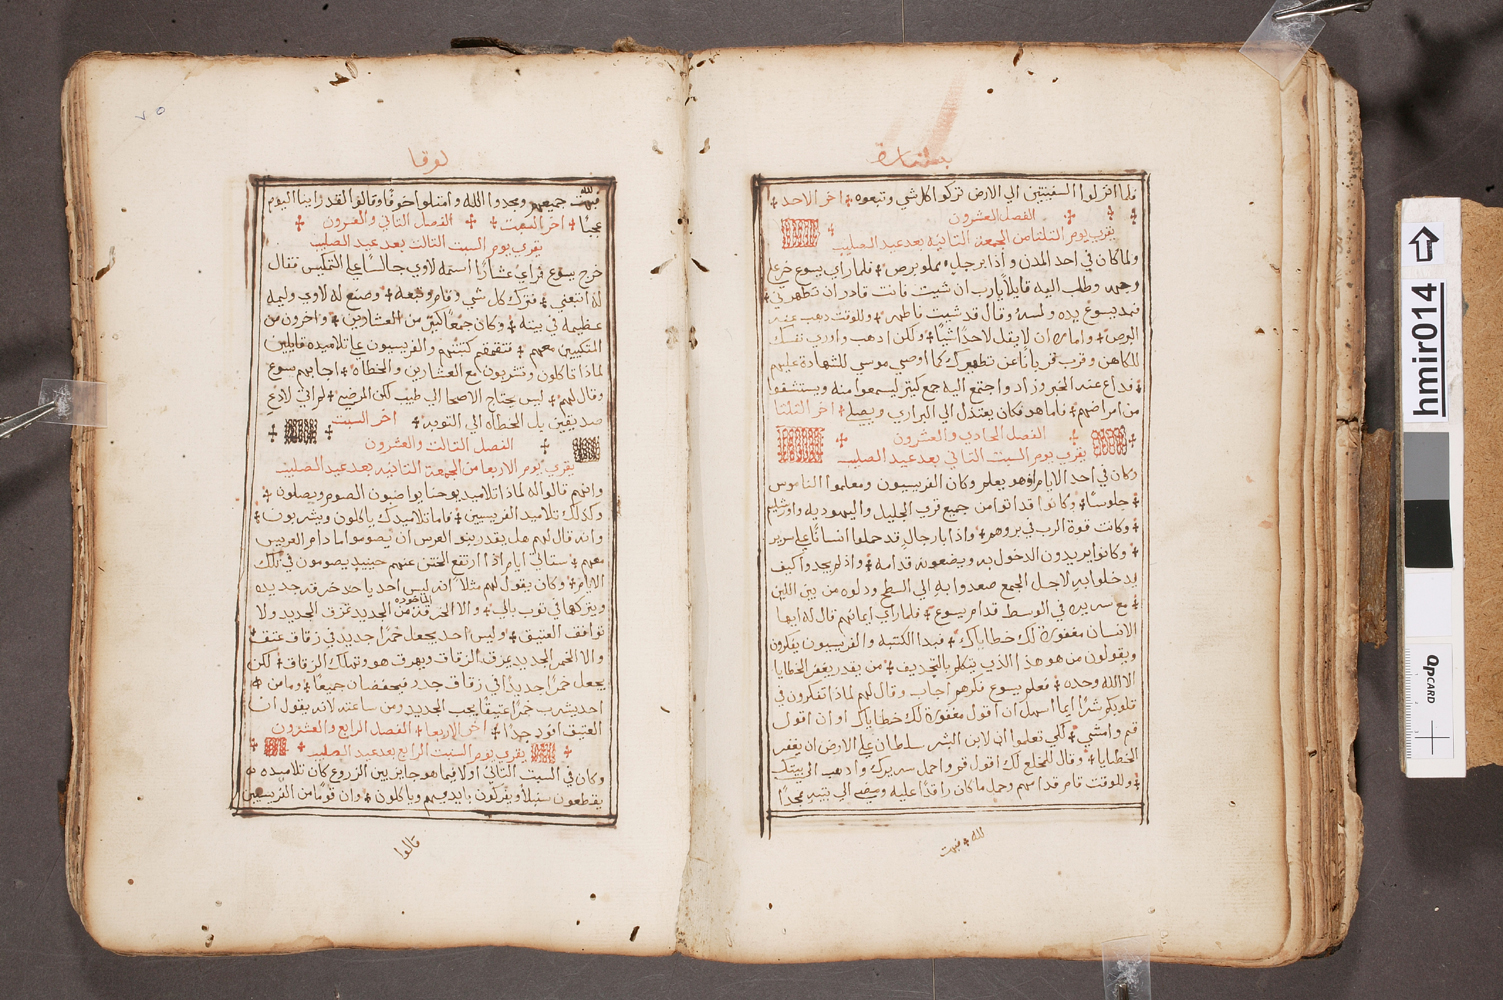 بشارة
فلما انزلوا السفينتين الي الارض تركوا كل شي وتبعوه اخر الاحد
الفصل العشرون
يقري يوم الثلثا من الجمعة الثانية بعد عيد الصليب
ولما كان في احد المدن واذا برجل مملو برص فلما راي يسوع خر علي
وجهه وطلب اليه قايلا يارب ان شيت فانت قادر ان تطهرني
فمد يسوع يده ولمسه وقال قد شيت فاطهر وللوقت دهب عنه
البرص وامره ان لا يقل لاحد شيا ولكن ادهب واوري نفسك
للكاهن وقرب قربانا عن تطهيرك كما اوصي موسي للشهادة عليهم
فداع عنه الخبر وزاد واجتمع اليه جمع كتير ليسمعوا منه ويستشفوا
من امراضهم فاما هو فكان يعتذل الي البراري ويصلي اخر الثلثا
الفصل الحادي والعشرون
يقري يوم السبت التاني بعد عيد الصليب
وكان في احد الايام وهو يعلم وكان الفريسيون ومعلموا الناموس
جلوسا وكانوا قد اتوا من جميع قري الجليل واليهوديه واورشليم
وكانت قوة الرب في بروهم واذا برجال قد حملوا انسانا علي سرير
وكانوا يريدون الدخول به ويضعونه قدامه واذ لم يجدوا كيف
يدخلوا به لاجل الجمع صعدوا به الي السطح ودلوه من بين اللبن
مع سريره في الوسط قدام يسوع فلما راي ايمانهم قال له ايها
الانسان مغفورة لك خطاياك فبدا الكتبة والفريسيون يفكرون
ويقولون من هو هذا الذي يتكلم بالتجديف من يقدر يغفر الخطايا
الا الله وحده فعلم يسوع فكرهم اجاب وقال لهم لماذا تفكرون في
قلوبكم شرا ايما اسهل ان اقول مغفورة لك خطاياك او ان اقول
قم وامشي لكي تعلموا ان لابن البشر سلطان علي الارض ان يغفر
الخطايا وقال للمخلع لك اقول قم واحمل سريرك وادهب الي بيتك
وللوقت قام قدامهم وحمل ما كان راقدا عليه ومضي الي بيته ممجدا
لله فبهت
لوقا
لله
فبهت جميعهم ومجدوا الله وامتلوا خوفا وقالوا لقد راينا اليوم
عجبا اخر السبت الفصل الثاني والعشرون
يقري يوم السبت الثالث بعد عيد الصليب
خرج يسوع فراي عشارا اسمه لاوي جالسا علي التمكيس فقال
له اتبعني فترك كل شي وقام وتبعه وصنع له لاوي وليمه
عظيمه في بيته وكان جمعا كتير من العشارين واخرون من
المتكيين معهم فتقمقم كتبتهم والفريسيون علي تلاميده قايلين
لماذا تاكلون وتشربون مع العشارين والخطاه اجابهم يسوع
وقال لهم ليس يحتاج الاصحا الي طبيب لكن المرضي لم اتي لادع
صديقين بل الخطاه الي التوبه اخر السبت
الفصل الثالث والعشرون
يقري يوم الاربعا من الجمعة الثانيه بعد عيد الصليب
وانهم قالوا له لماذا تلاميد يوحنا يواضبون الصوم ويصلون
وكدلك تلاميد الفريسيين فاما تلاميدك ياكلون ويشربون
وانه قال لهم هل يقدر بنو العرس ان يصوموا ما دام العريس
معهم ستاتي ايام اذا ارتفع الختن عنهم حينيد يصومون في تلك
الايام وكان يقول لهم مثلا انه ليس احد ياخد خرقه جديده
ويتركها في توب بالي والا الخرقه الماخوده من الجديد تمزق الجديد ولا
توافق العتيق وليس احد يجعل خمرا جديد في زقاق عتق
والا الخمر الجديد يمزق الزقاق ويهرق هو وتهلك الزقاق لكن
يجعل خمرا جديدا في زقاق جدد فيحفضان جميعا وما من
احد يشرب خمرا عتيقا يحب الجديد ومن ساعته لانه يقول ان
العتيق اجود جدا اخر الاربعا الفصل الرابع والعشرون
يقري يوم السبت الرابع بعد عيد الصليب
وكان في السبت التاني اولا فيما هو جايز بين الزروع كان تلاميده
يقطعون سنبلا ويفركون بايديهم وياكلون وان قوما من الفريسيين
قالوا
٧٥
hmir014
QP CARD